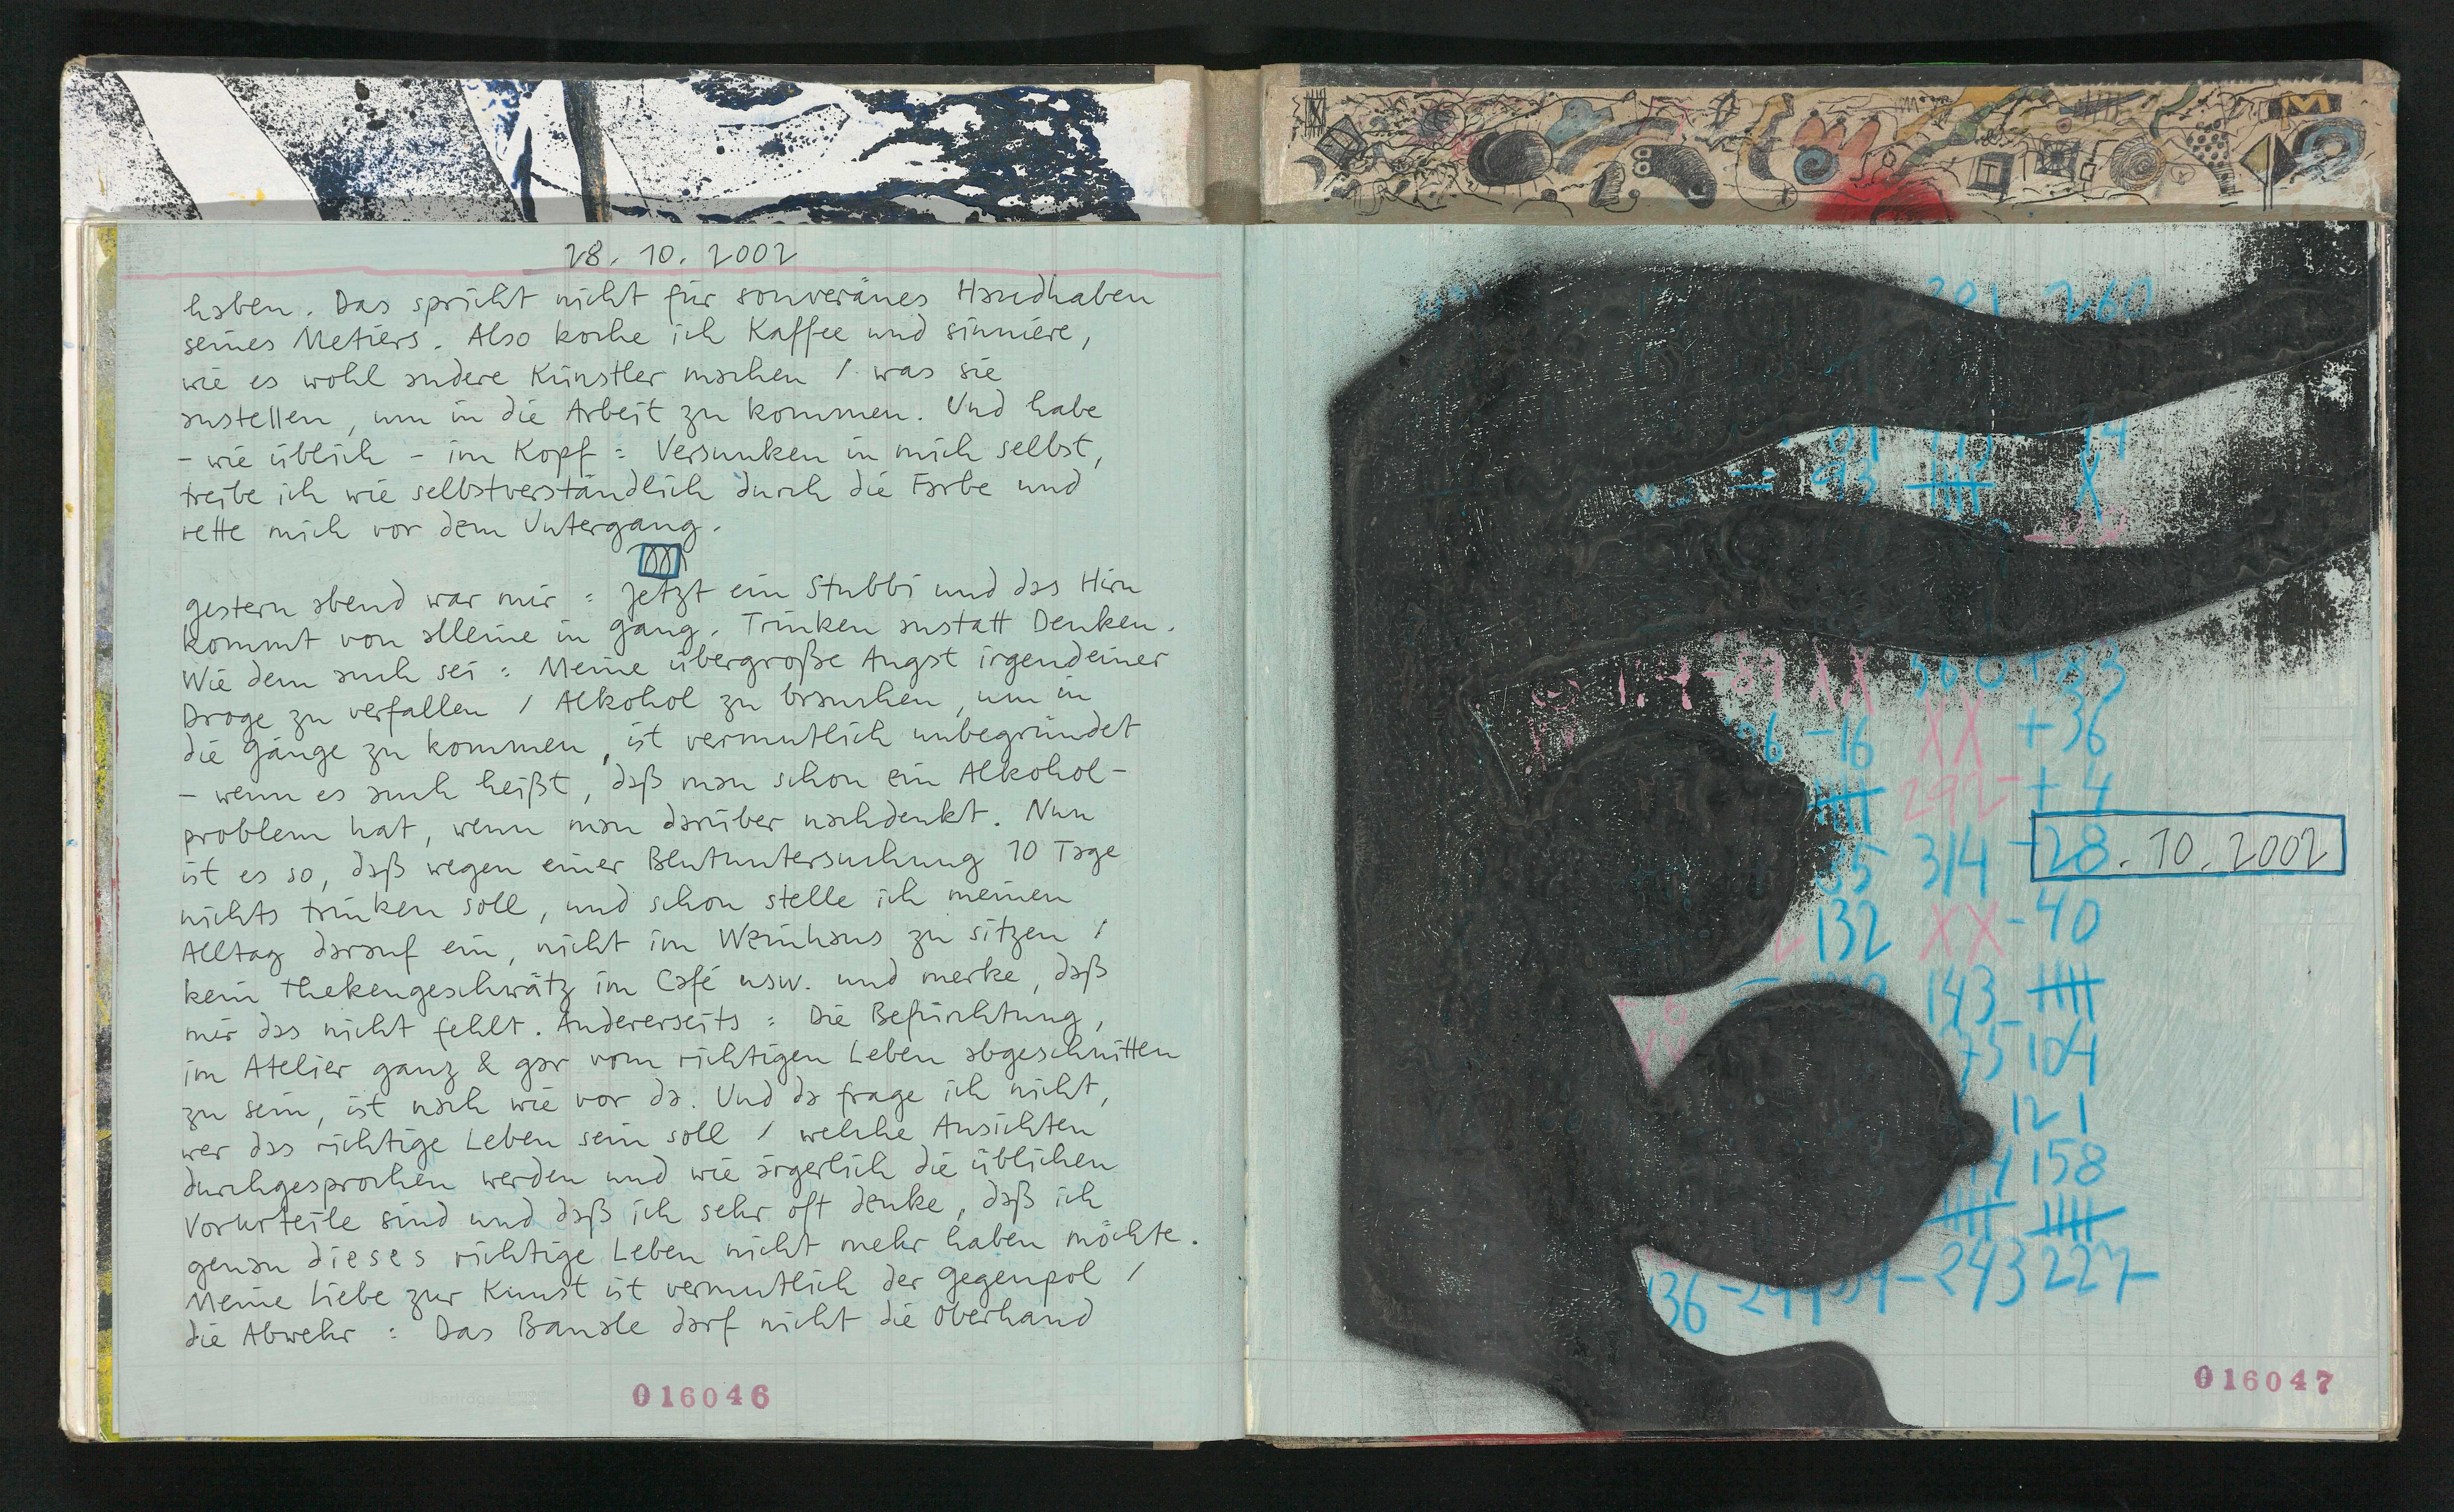 28. 10. 2002
haben. Das spricht nicht für souveränes Handhaben
seines Metiers. Also koche ich Kaffee und sinniere,
wie es wohl andere Künstler machen / was sie
anstellen, um in die Arbeit zu kommen. Und habe
- wie üblich - im Kopf : Versunken in mich selbst,
treibe ich wie selbstverständlich durch die Farbe und
rette mich vor dem Untergang.
gestern abend war mir : Jetzt ein Stubbi und das Hirn
kommt von alleine in gang. Trinken anstatt Denken.
Wie dem auch sei : Meine übergroße Angst irgendeiner
Droge zu verfallen / Alkohol zu brauchen, um in
die gänge zu kommen, ist vermutlich unbegründet
- wenn es auch heißt, daß man schon ein Alkohol-
problem hat, wenn man darüber nachdenkt. Nun
ist es so, daß wegen einer Blutuntersuchung 10 Tage
nichts trinken soll, und schon stelle ich meinen
Alltag darauf ein, nicht im Weinhaus zu sitzen /
kein Thekengeschwätz im Café usw. und merke, daß
mir das nicht fehlt. Andererseits : Die Befürchtung,
im Atelier ganz & gar vom richtigen Leben abgeschnitten
zu sein, ist nach wie vor da. Und da frage ich nicht,
wer das richtige Leben sein soll / welche Ansichten
durchgesprochen werden und wie ärgerlich die üblichen
Vorurteile sind und daß ich sehr oft denke, daß ich
genau dieses richtige Leben nicht mehr haben möchte.
Meine Liebe zur Kunst ist vermutlich der gegenpol /
die Abwehr : Das Banale darf nicht die Oberhand
016046
M
260
93 X
-89 XX 560 + 83
-16 XX + 36
292 + 4
314
28. 10. 2002
132 XX - 40
143
75 104
121
158
136 - 243 227
016047